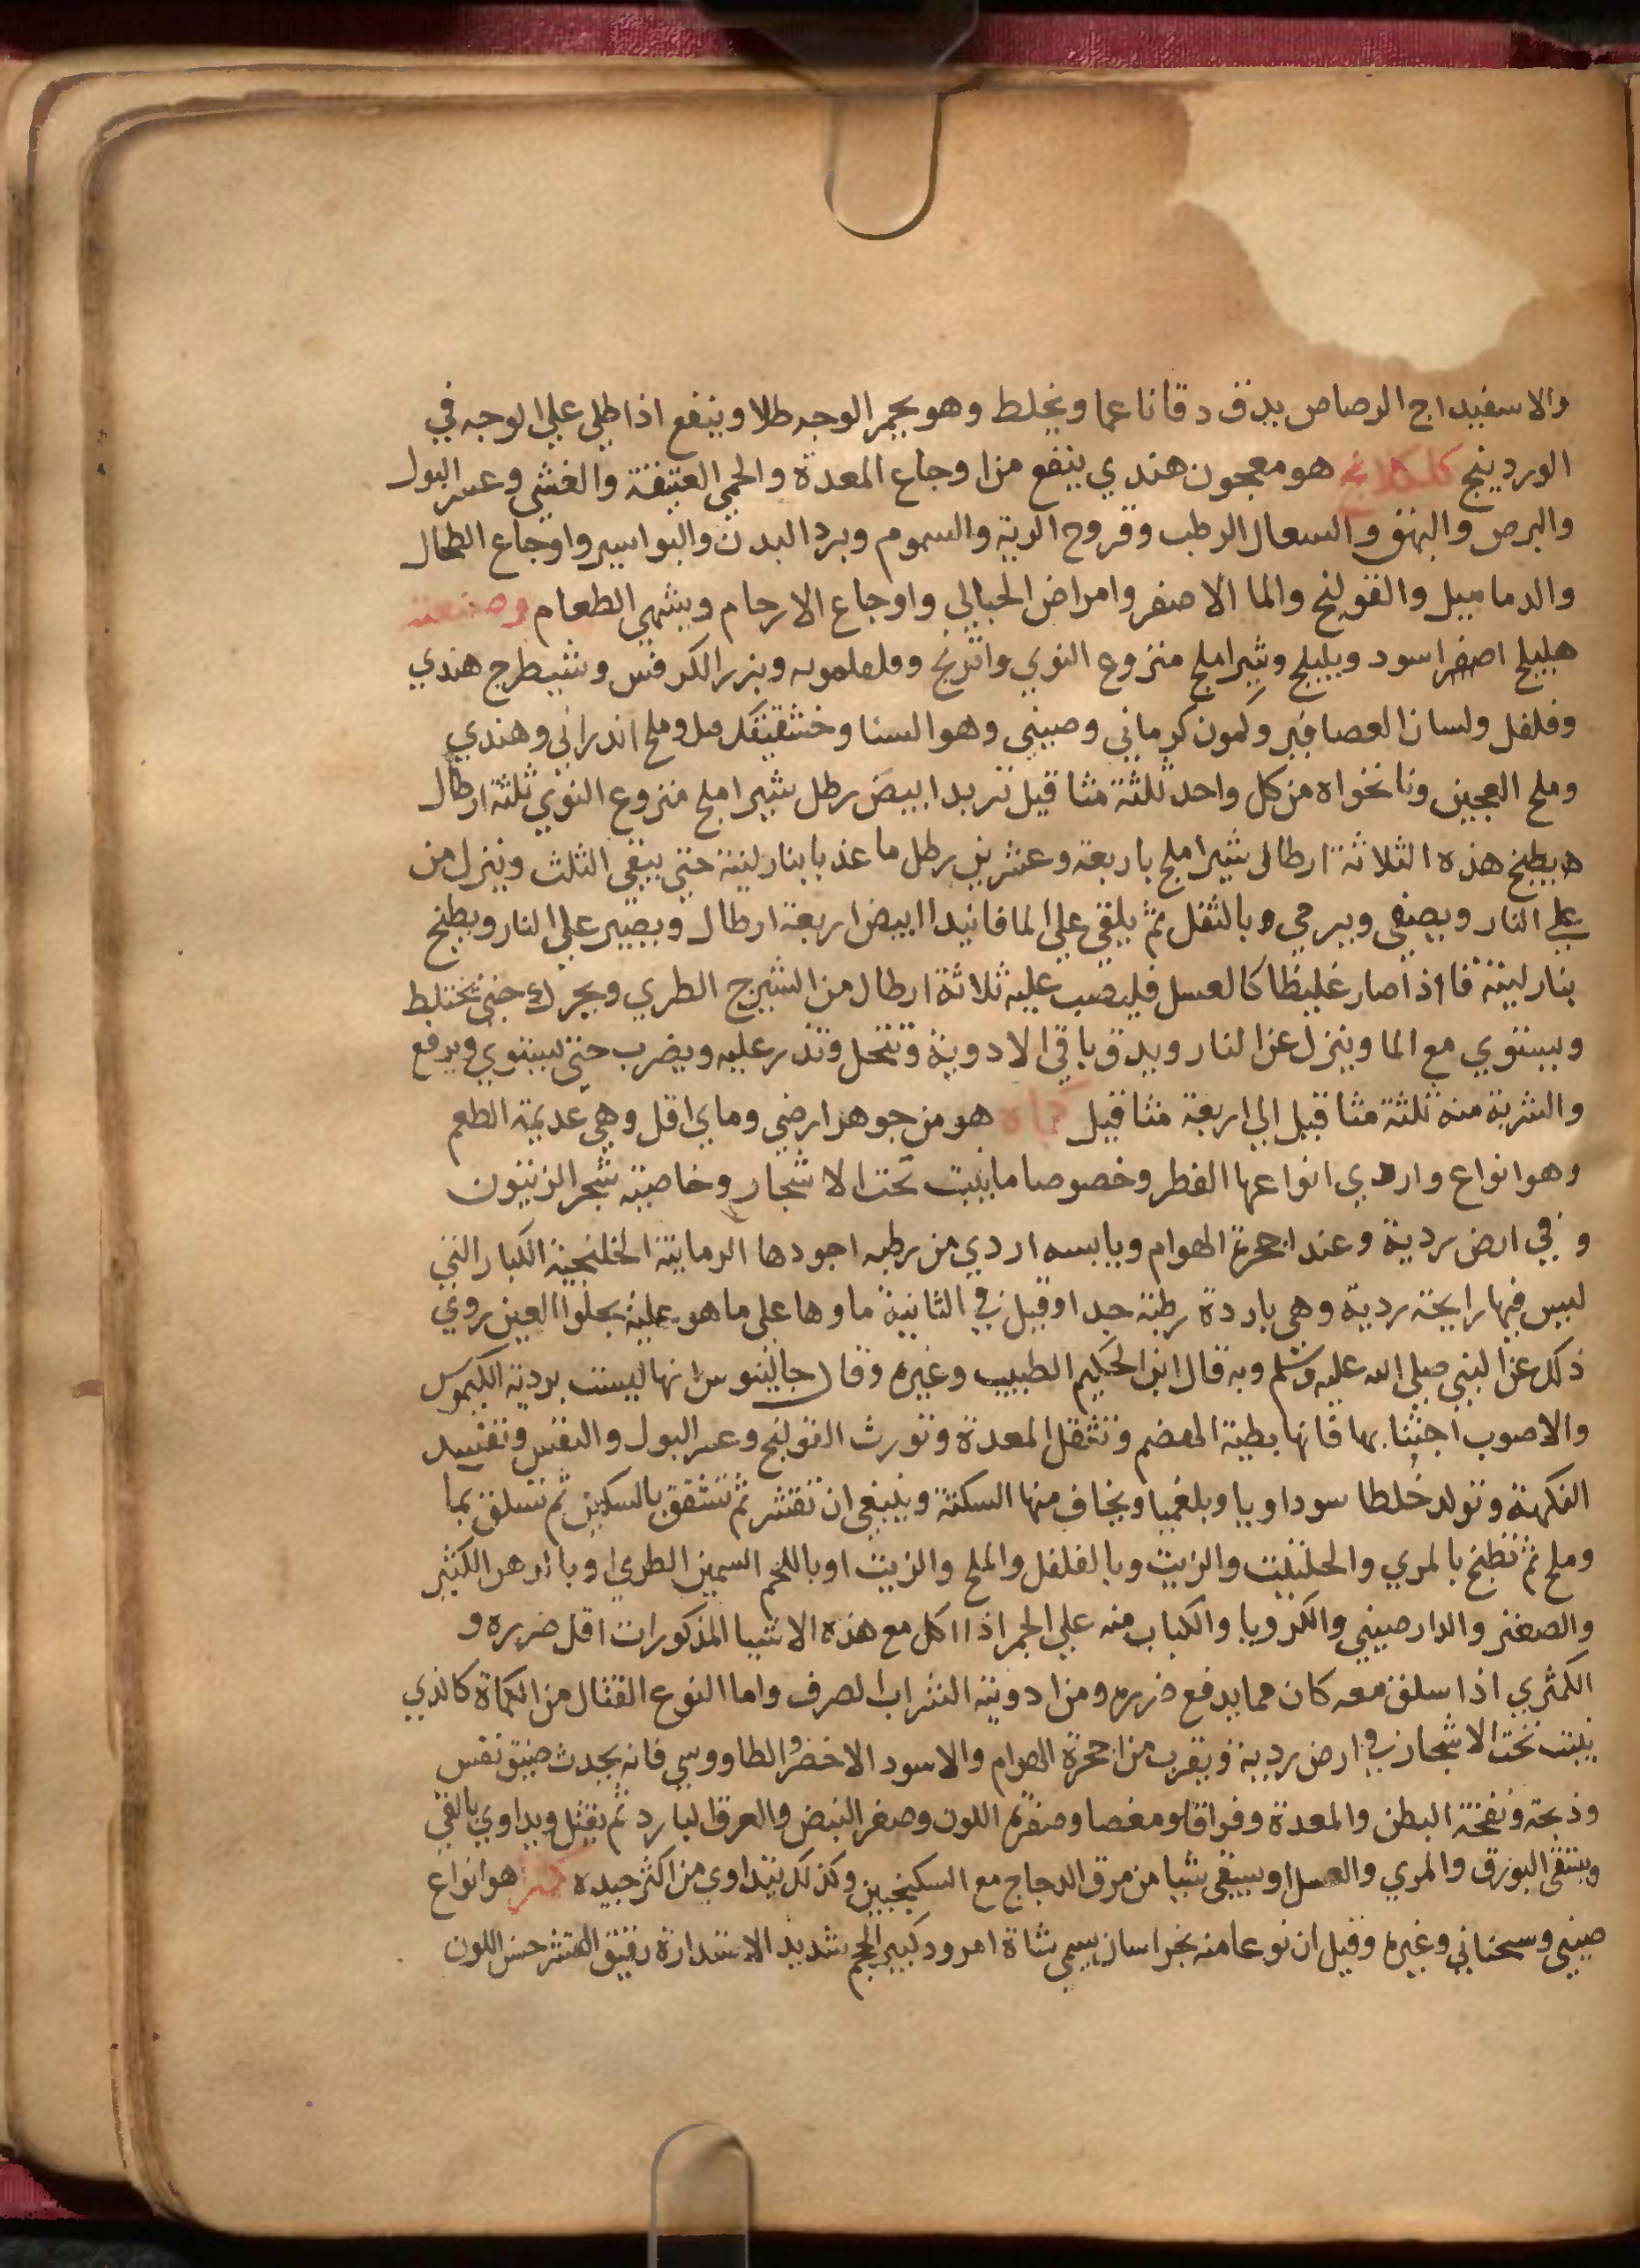 والاسفيداج الرصاص يدق دقا ناعما ويخلط وهو يحمر الوجه طلا وينفع اذا طلي علي الوجه في
الوردينج كلكلانج هو معجون هندي ينفع من اوجاع المعدة والحمي العتيقة والغشي وعسر البول
والبرص والبهق والسعال الرطب وقروح الرية والسموم وبرد البدن والبواسير واوجاع الطحال
والدماميل والقولنج والما الاصفر وامراض الحبالي واوجاع الارحام ويشهي الطعام وصنعته
هليلج اصفر اسود وبليلج وشير املج منزوع النوي واترنج وفلفلمويه وبزر الكرفس وشيطرج هندي
وفلفل ولسان العصافير وكمون كرماني وصيني وهو السنا وملح اندراني وهندي
وملح العجين ونانخواه من كل واحد ثلثة مثاقيل تربد ابيض رطل شير املج منزوع النوي ثلثة ارطال
يطبخ هذه الثلاثة ارطال شير املج باربعة وعشرين رطل ما عذبا بنار لينة حتي يبقي الثلث وينزل من
علي النار ويصفي ويرمي وبالثفل ثم يلقي علي الما فانيدا ابيض اربعة ارطال ويصير علي النار ويطبخ
بنار لينة فااذا صار غليظا كالعسل فليصب عليه ثلاثة ارطال من الشيرج الطري ويحرك حتي تختلط
ويستوي مع الما وينزل عن النار ويدق باقي الادوية وتنخل وتذر عليه ويضرب حتي يستوي ويرفع
والشربة منه ثلثة مثاقيل الي اربعة مثاقيل كماة هو من جوهر ارضي وماي اقل وهي عديمة الطعم
وهو انواع واردي انواعها الفطر وخصوصا ما ينبت تحت الاشجار وخاصيته شجر الزيتون
وفي ارض ردية وعند اجحرة الهوام ويابسه اردي من رطبه اجودها الرمانية الخلنجية الكبار التي
ليس فيها رايحة ردية وهي باردة رطبة جدا وقيل في الثانية ماوها علي ما هو عليه يجلوا العين روي
ذلك عن النبي صلي الله عليه وسلم وبه قال ابن الحكيم الطبيب وغيره وقال جالينوس انها ليست بردية الكيموس
والاصوب اجتنابها فانها بطية الهضم وتثقل المعدة وتورث القولنج وعسر البول والنفس وتفسيد
النكهة وتولد خلطا سوداويا وبلغميا ويخاف منها السكتة وينبغي ان تقشر ثم تشقق بالسكين ثم تسلق بما
وملح ثم تطبخ بالمري والحلتيت والزيت وبالفلفل والملح والزيت او باللحم السمين الطري او بالدهن الكثير
والصعتر والدارصيني والكرويا والكباب منه علي الجمر اذا اكل مع هذه الاشيا المذكورات اقل ضرره و
الكمثري اذا سلق معه كان مما يدفع ضرره ومن ادويته الشراب الصرف واما النوع القتال من الكماة كالذي
ينبت تحت الاشجار في ارض ردية ويقرب من اجحرة الهوام والاسود الاخضر والطاووسي فانه يحدث ضيق نفس
وذبحة ونفخة البطن والمعدة وفواقا ومغصا وصفرة اللون وصغر النبض والعرق البارد ثم يقتل ويداوي بالقي
ويسقي البورق والمري والعسل او يسقي شيا من مرق الدجاج مع السكنجبين وكذلك يتداوي من اكثر جيده كمثري هو انواع
صيني وسجستاني وغيره وقيل ان نوعا منه بخراسان يسمي شاة امرود كبير الحجم شديد الاستدارة رقيق القشر حسن اللون